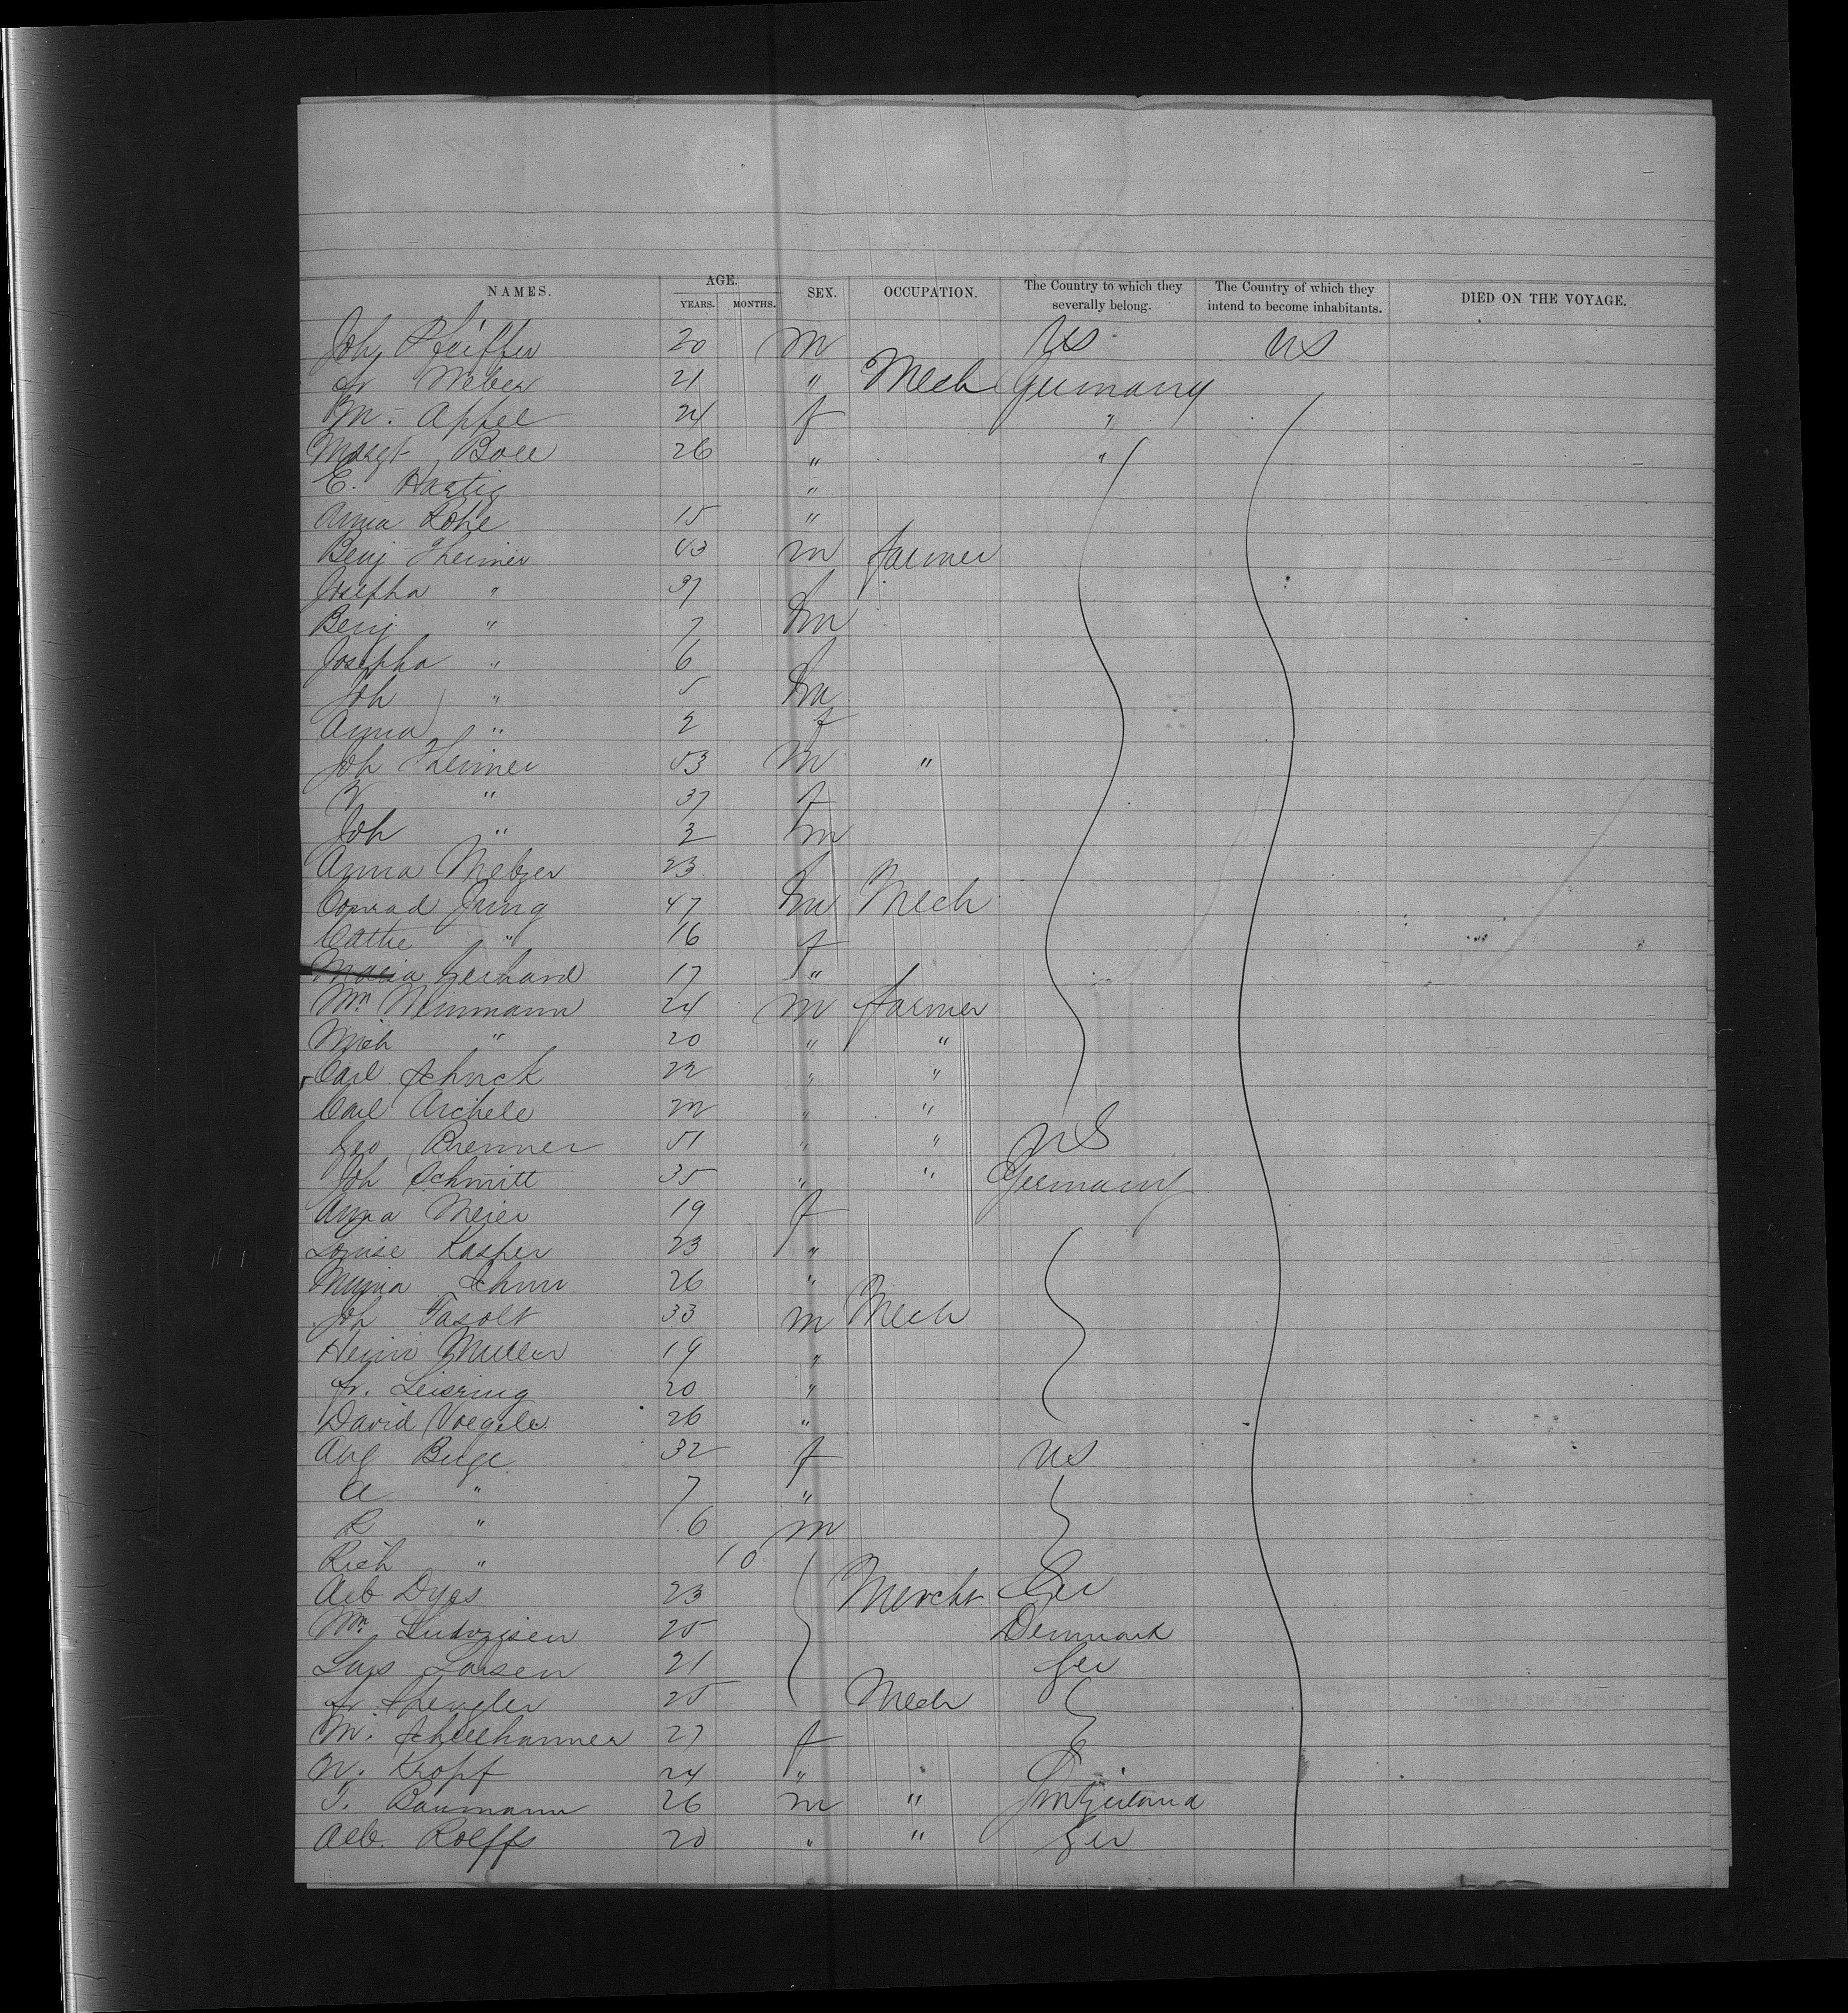 NAMES. AGE. YEARS. MONTHS. SEX. OCCUPATION. The Country to which they severally belong. The Country of which they intend to become inhabitants. DIED ON THE VOYAGE.
Joh Pfeiffer 20 m US US
Fr Weber 21 " Mech Germany
M. Apfel 24 f "
Margt Boll 26 " "
E. Hartig "
Anna Rohe 15 "
Benj Theimer 43 m farmer
Josepha " 37
Benj " 7 m
Josepha " 6
Joh " 5 m
Anna " 2 f
Joh Theimer 53 m "
V " 37 f
Joh " 3 m
Anna Melzer 23
Conrad Jung 47 m Mech
Cathe " 16 f
Maria Gerhard 17 "
Wm Weinmann 24 m farmer
Mich " 20 " "
Carl Schuck 22 " "
Carl Aichele 22 " "
Geo Brenner 51 " " US
Joh Schmitt 35 " " Germany
Anna Meier 19 f
Louise Kasper 23 "
Minna 26 "
Joh Fasolt 33 m Mech
Heinr Muller 19 "
Fr. Leisring 20 "
David Voegele 26 "
Aug 32 f US
A " 7 "
R " 6 m
Rich " 10
Alb Dyes 23 Mercht Ger
Wm Ludvigsen 25 Denmark
Lars Larsen 21 Ger
Fr. Spengler 25 Mech
M. Schellhammer 27 f
W. Kropf 24 " "
T. Baumann 26 m " Switzerland
Alb. Rolffs 20 " " Ger